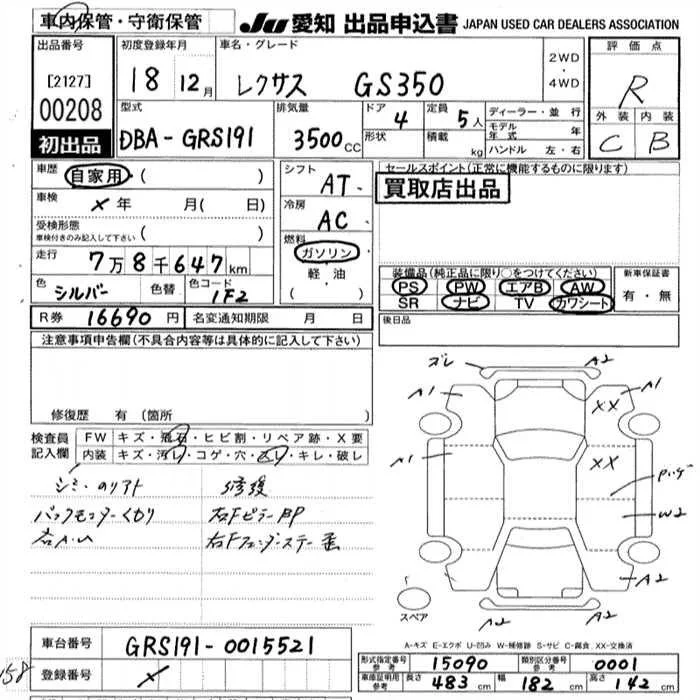 車内保管・守衛保管
JU 愛知 出品申込書 JAPAN USED CAR DEALERS ASSOCIATION
出品番号
[2127]
00208
初出品
初度登録年月
18 12月
車名・グレード
レクサス GS350
2WD
・
4WD
評価点
R
外装 内装
C B
型式
DBA-GRS191
排気量
3500cc
ドア
4
形状
定員
5人
積載
kg
ディーラー・並行
モデル年式 年
ハンドル 左・右
車歴
自家用 ( )
車検 × 年 月( 日)
受検形態
車検付きのみ記入して下さい ( )
走行 7万8千647km
色 シルバー 色替 色コード 1F2
シフト
AT
冷房
AC
燃料
ガソリン
軽油
( )
セールスポイント(正常に機能するものに限ります)
買取店出品
装備品(純正品に限り○をつけてください)
PS PW エアB AW
SR ナビ TV カワシート
新車保証書
有・無
R券 16690円 名変通知期限 月 日
後日品
注意事項申告欄(不具合内容等は具体的に記入して下さい)
修復歴 有 (箇所 )
検査員記入欄
FW キズ・飛石・ヒビ割・リペア跡・X要
内装 キズ・汚れ・コゲ・穴・スレ・キレ・破レ
修復
右FピラーBP
A2
A1
A1
XX
A1
XX
W2
A2
A2
A2
スペア
車台番号 GRS191-0015521
登録番号 ×
158
A-キズ E-エクボ U-凹み W-補修跡 S-サビ C-腐食 XX-交換済
形式指定番号 参考 15090 類別区分番号 参考 0001
車庫証明用 参考 長さ 483cm 幅 182cm 高さ 142cm